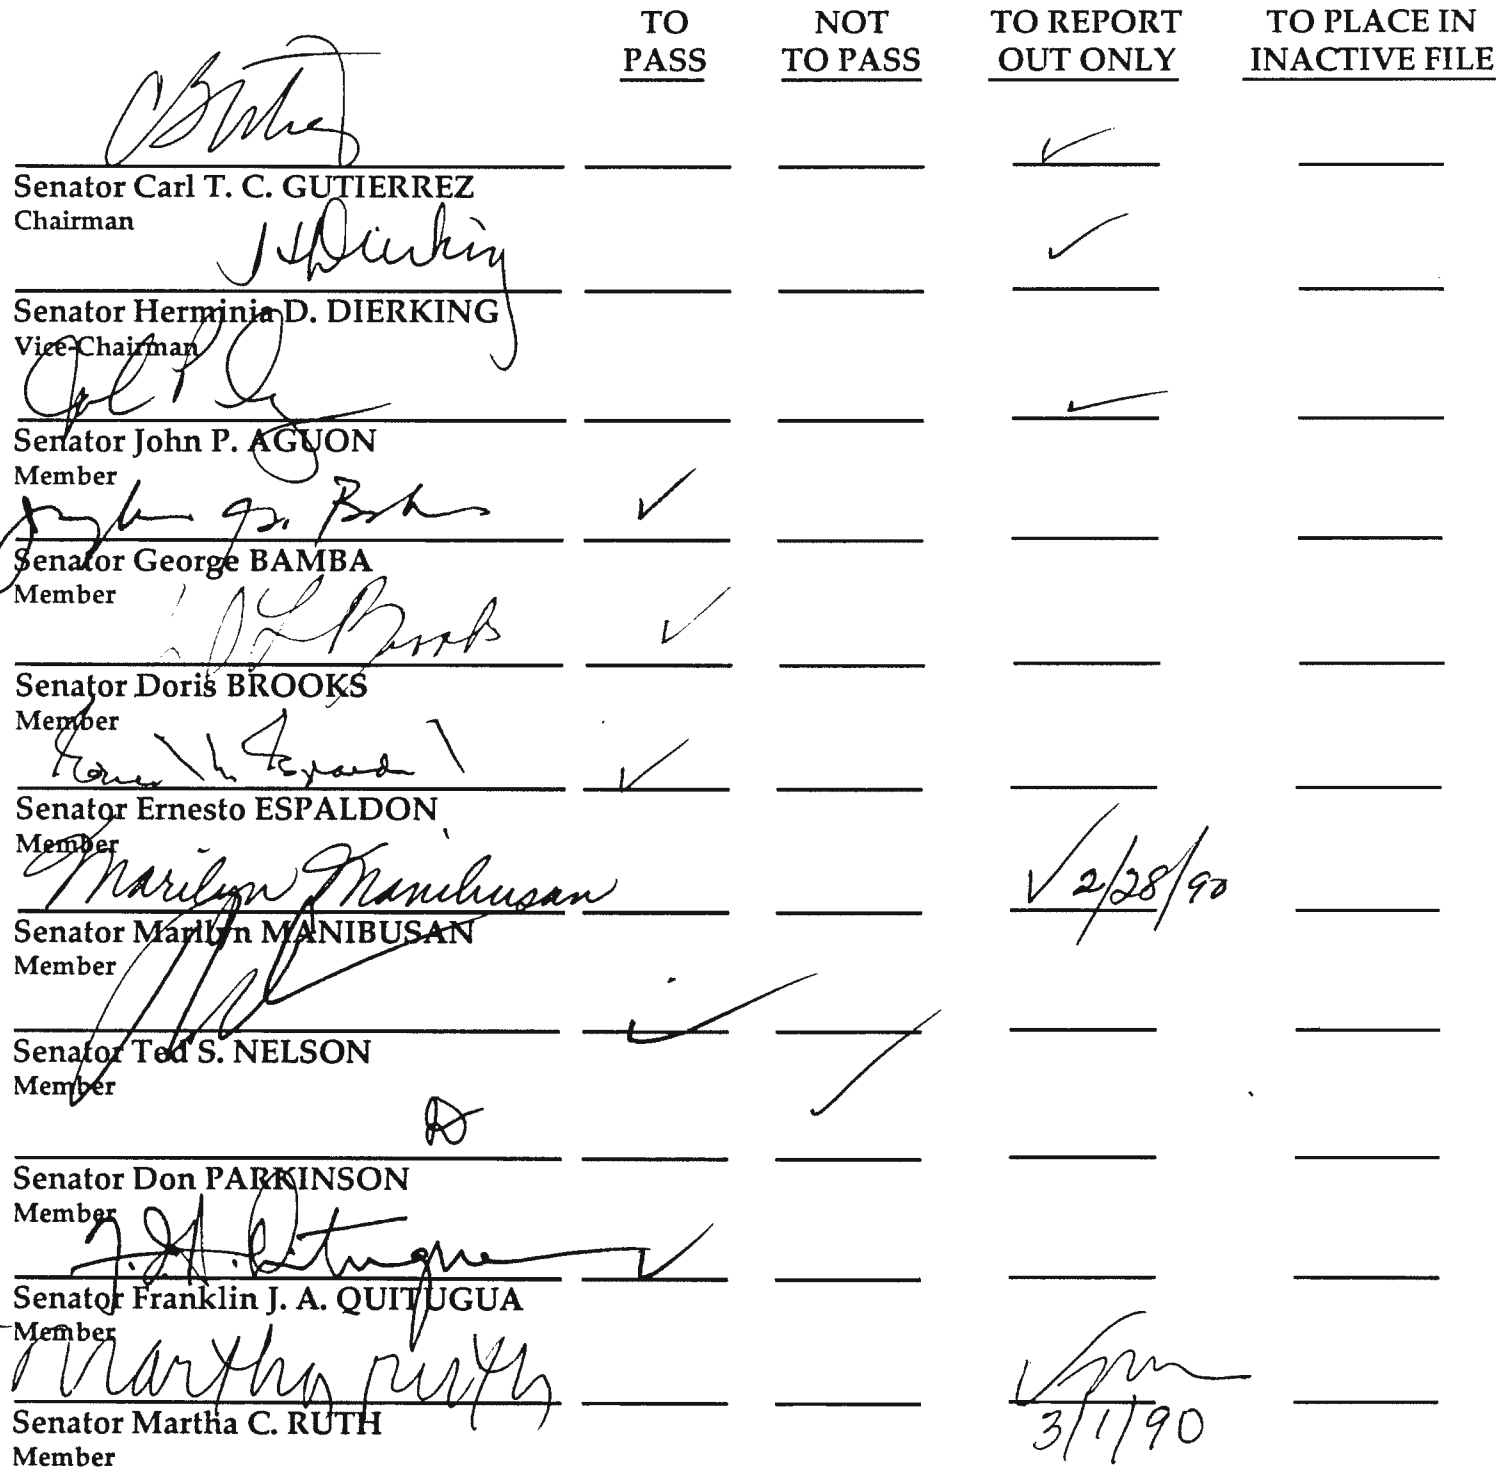 TO NOT TO REPORT TO PLACE IN
PASS TO PASS OUT ONLY INACTIVE FILE
✓
Senator Carl T. C. GUTIERREZ
Chairman
H Dierking ✓
Senator Herminia D. DIERKING
Vice-Chairman
✓
Senator John P. AGUON
Member
✓
Senator George BAMBA
Member
Brooks ✓
Senator Doris BROOKS
Member
✓
Senator Ernesto ESPALDON
Member
Marilyn Manibusan ✓ 2/28/90
Senator Marilyn MANIBUSAN
Member
✓
Senator Ted S. NELSON
Member
✓
Senator Don PARKINSON
Member
F. J. A. Quitugua ✓
Senator Franklin J. A. QUITUGUA
Member
Martha Ruth ✓
Senator Martha C. RUTH 3/1/90
Member